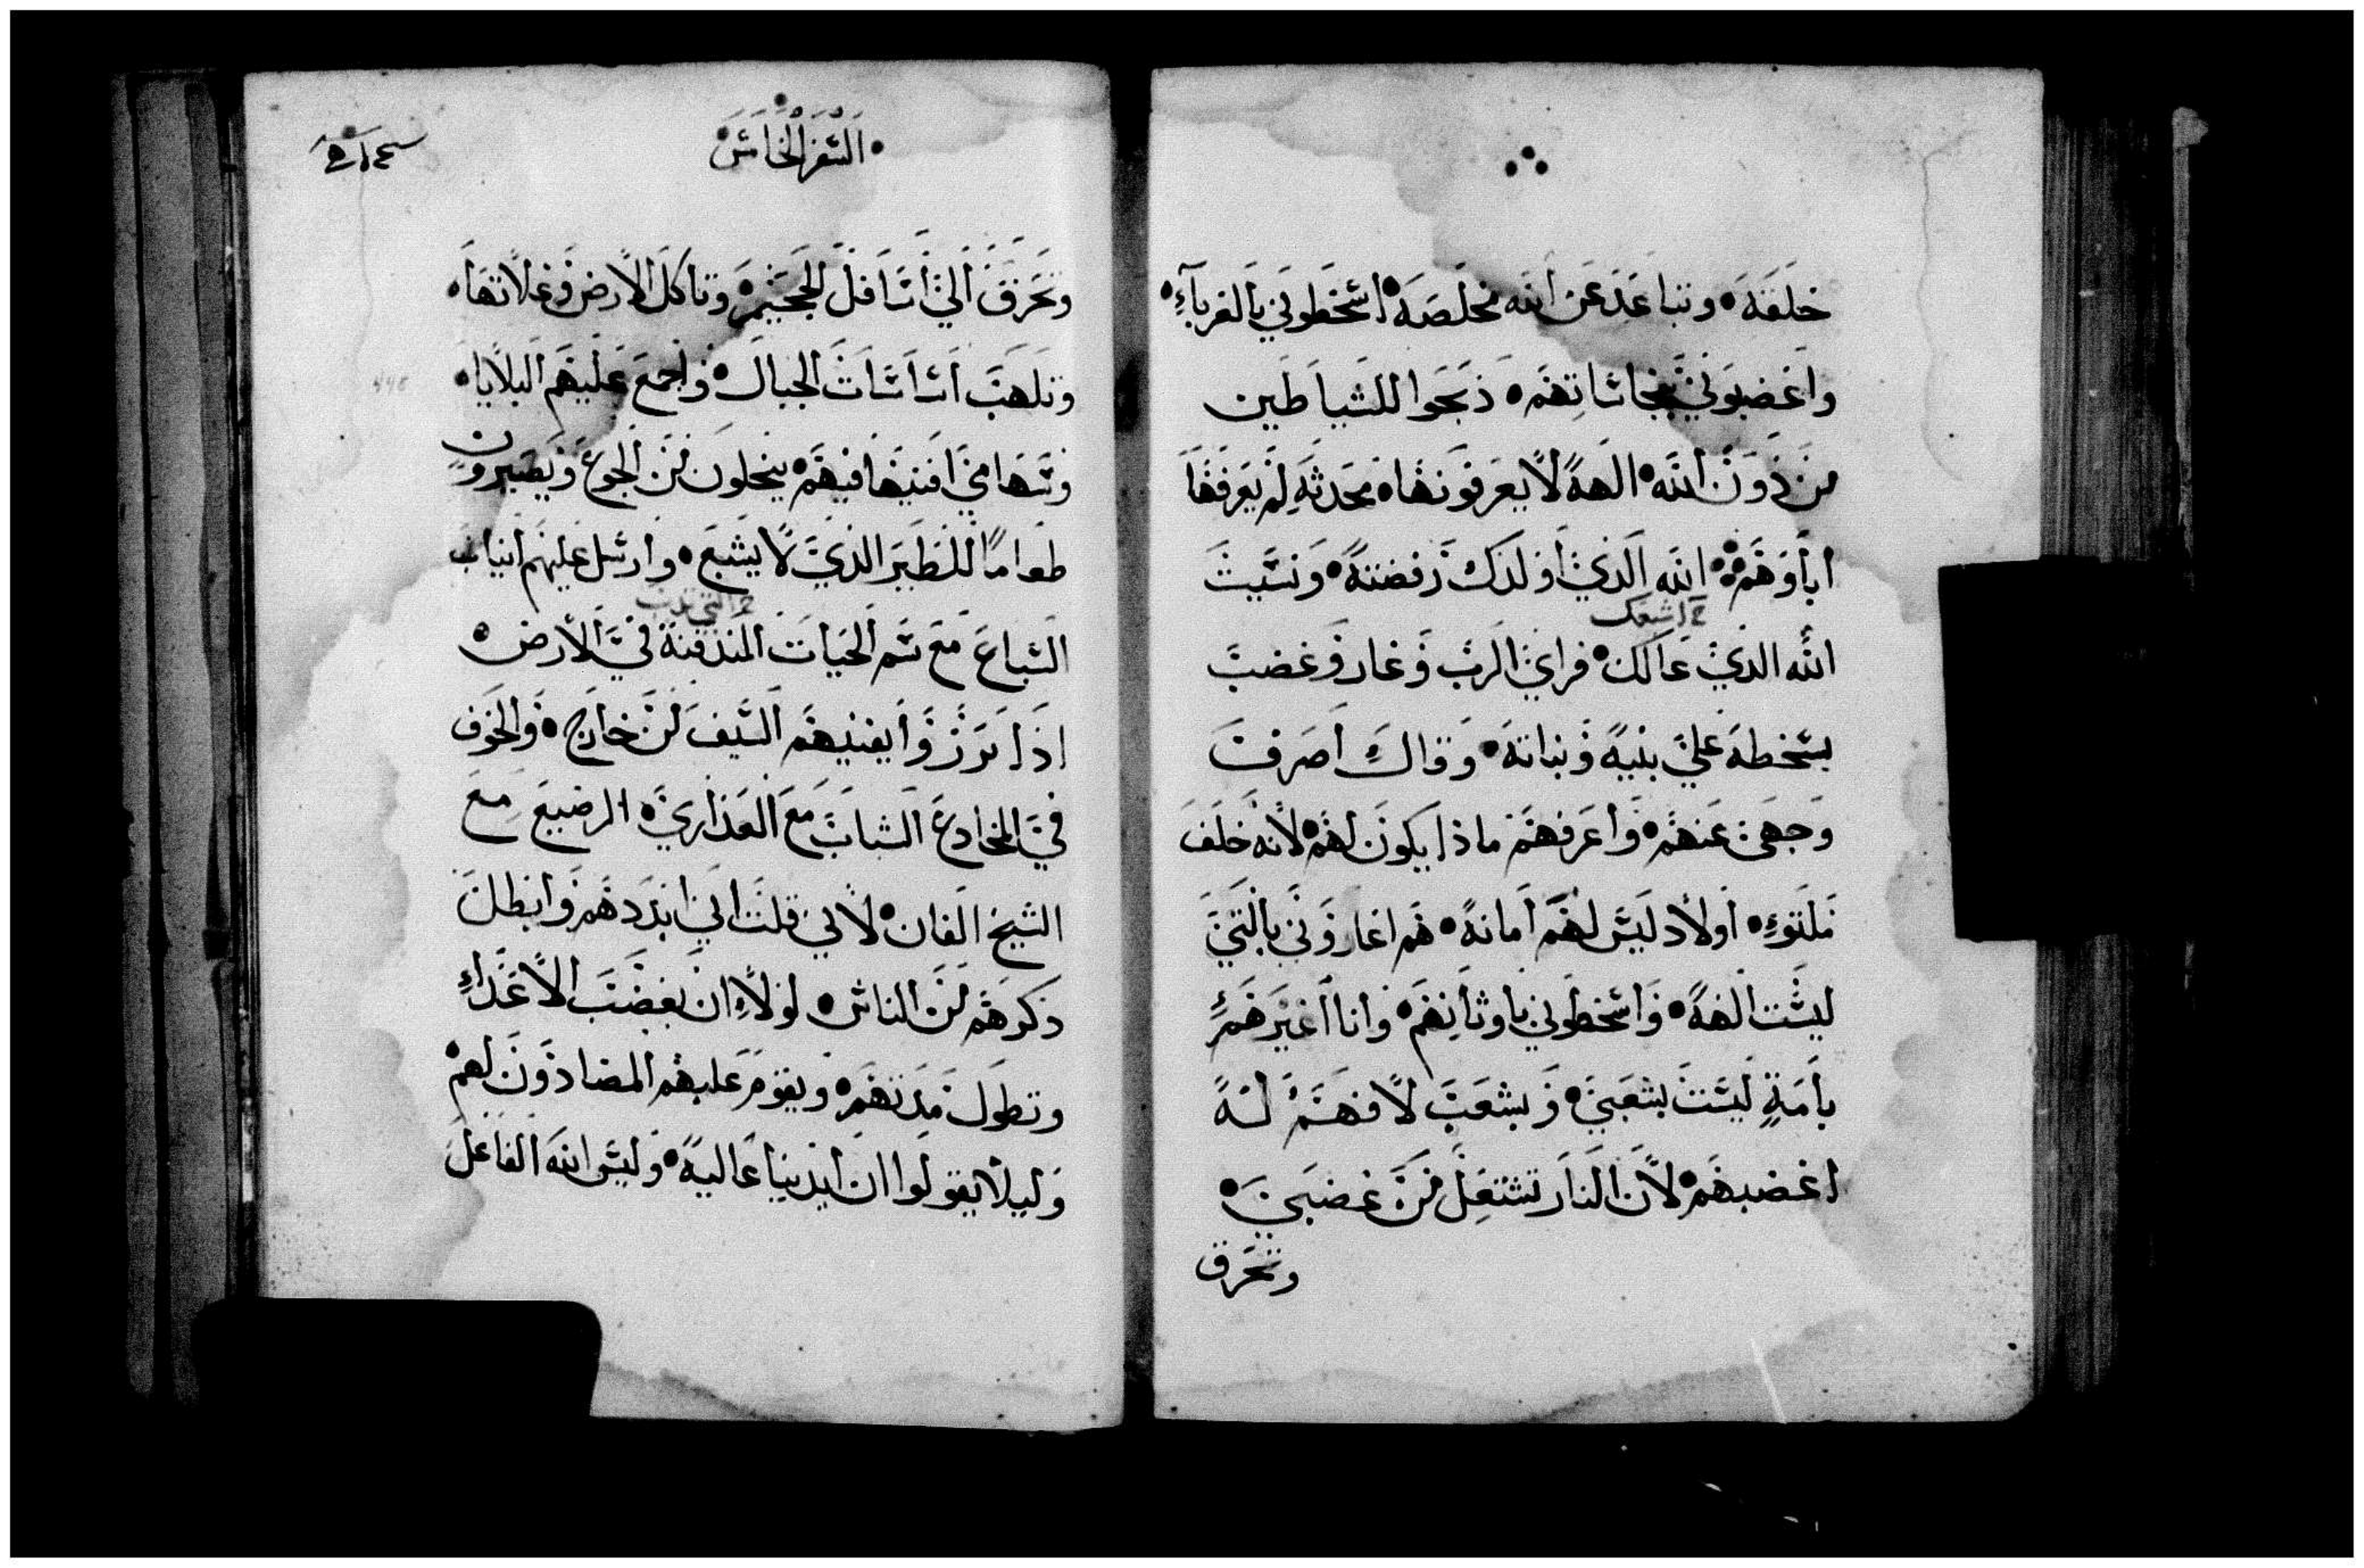 خلقه • وتباعد عن الله مخلصه • اسخطوني بالغرباء •
واغضبوني بنجاساتهم • ذبحوا للشياطين
من دون الله • الهة لا يعرفونها • محدثه لم يعرفها
اباوهم • الله الذي اولدك رفضته • ونسيت
ح اشبعك
الله الذي عالك • فراي الرب وغار وغضب
بسخطه علي بنيه وبناته • وقال اصرف
وجهي عنهم • واعرفهم ماذا يكون لهم • لانه خلف
ملتوء • اولاد ليس لهم امانة • هم اغاروني بالتي
ليست الهة • واسخطوني باوثانهم • وانا اغيرهم
بامة ليست بشعبي • وبشعب لا فهم له
اغضبهم • لان النار تشتعل من غضبي •
وتحرق
• السفر الخامس •
وتحرق الي اسافل الجحيم • وتاكل الارض وغلاتها •
وتلهب اساسات الجبال • واجمع عليهم البلايا •
وسهامي افنيها فيهم • ينحلون من الجوع ويصيرون
طعاما للطير الذي لا يشبع • وارسل عليهم انياب
ح التي تدب
السباع مع سم الحيات المندفنة في الارض •
اذا برزوا يفنيهم السيف من خارج • والخوف
في المخادع الشاب مع العذاري • الرضيع مع
الشيخ الفان • لاني قلت اني ابددهم وابطل
ذكرهم من الناس • لولا ان بغضب الاعداء
وتطول مدتهم • ويقوم عليهم المضادون لهم •
وليلا يقولوا ان ايدينا عالية • وليس الله الفاعل